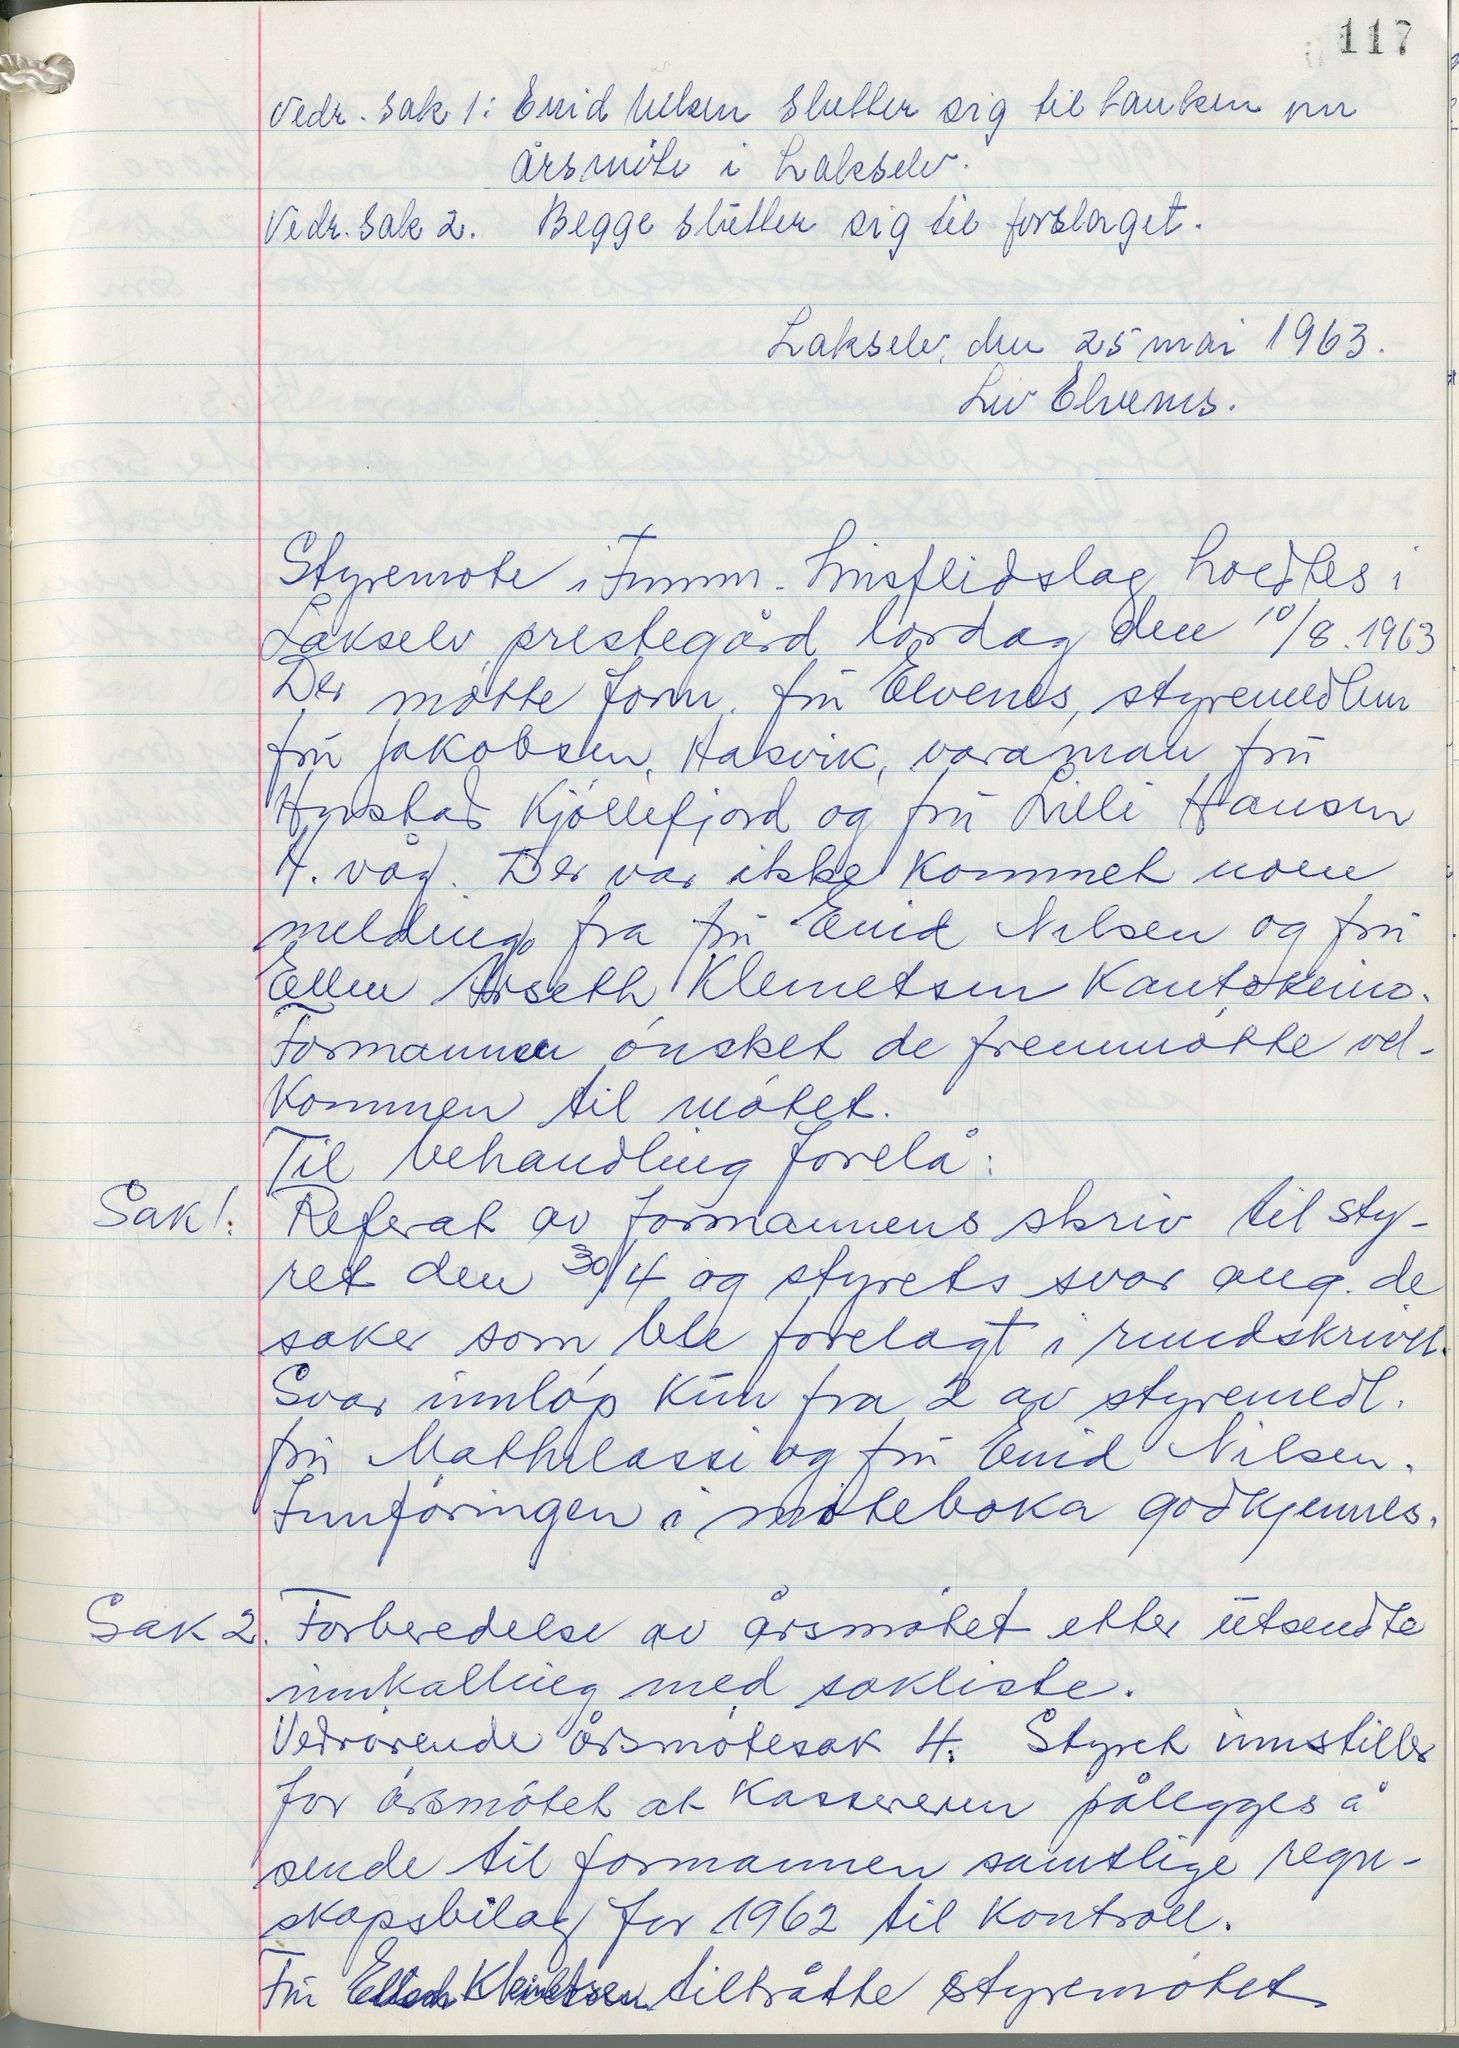 117
Vedr. sak 1: Enid Nilsen slutter sig til tanken om
årsmöte i Lakselv.
Vedr. sak 2. Begge slutter sig til forslaget.
Lakselv, den 25 mai 1963.
Liv Elvenes.
Styremöte i Finnm. husflidslag holdtes i
Lakselv prestegård lördag den 10/8. 1963
Der mötte form. frü Elvenes, styremedlem
frü Jakobsen, Hasvik, varaman frü
Kjöllefjord og frü Lilli Hansen
H. våg. Der var ikke kommet noen
melding fra frü Enid Nilsen og frü
Ellen Arseth Klemetsen Kautokeino.
Formannen önsket de fremmötte vel-
kommen til mötet.
Til behandling forelå:
Sak 1. Referat av formannens skriv til sty-
ret den 30/4 og styrets svar ang. de
saker som ble forelagt i rundskrivet.
Svar innlöp kün fra 2 av styremedl.
frü Mathilassi og frü Enid Nilsen.
Innföringen i möteboka godkjennes.
Sak 2. Forberedelse av årsmötet etter ütsendte
innkalling med sakliste.
Vedrörende årsmötesak 4. Styret innstiller
for årsmötet at kassereren pålegges å
sende til formannen samtlige regn-
skapsbilag for 1962 til kontroll.
Frü Klemetsen tiltrådte styremötet